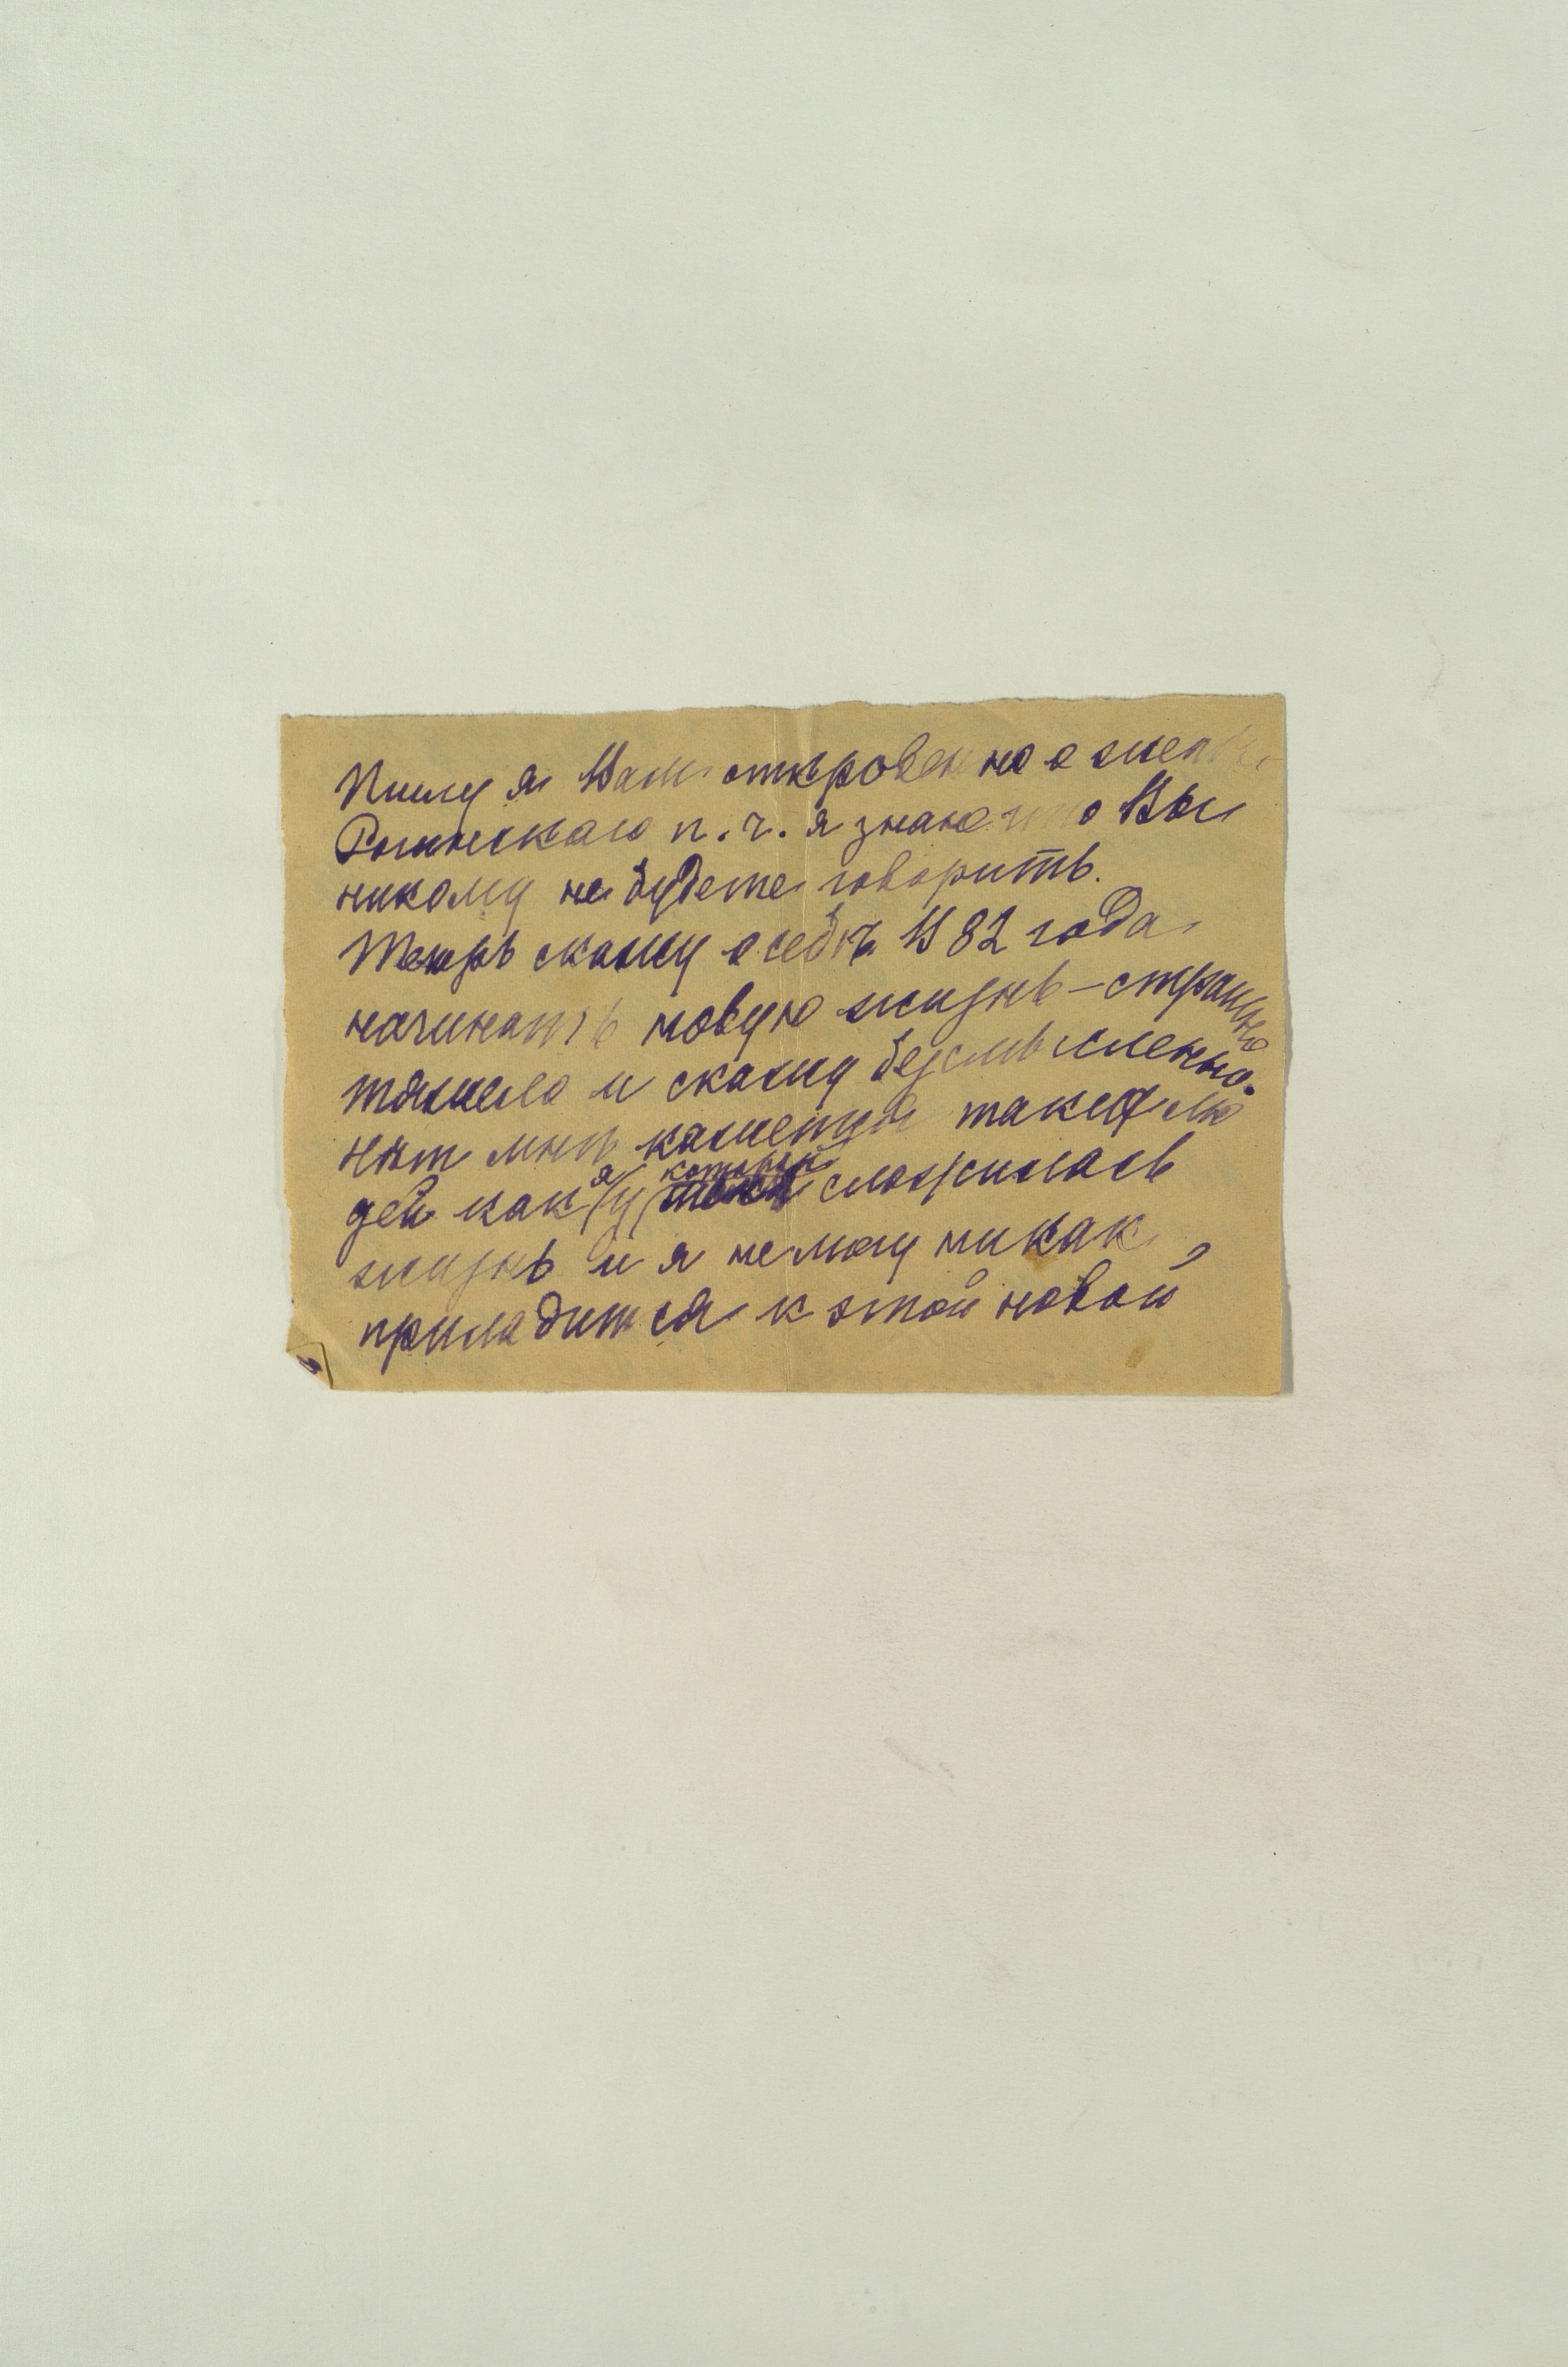 Пишу я Вам откровенно о жене
Рогинскаго п. ч. я знаю что Вы
никому не будете говорить.
Теперь скажу о себѣ. В 82 года
начинать новую жизнь – страшно
тяжело и скажу безсмысленно.
Нѣт мнѣ кажется таких лю
дей как я у которой сложилась
жизнь и я не могу никак
приладится к этой новой